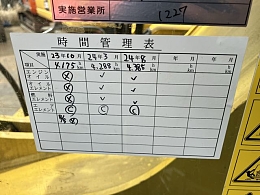 実施営業所 1227
時間管理表
実施 23年10月 24年3月 24年8月 年 月 年 月
項目 4,175 h km 4,288 h km 4,385 h km h km h km
エンジンオイル ⓧ ✓ ✓
オイルエレメント ⓧ ✓ ✓
燃料エレメント ⓧ ✓ ✓
エアエレメント Ⓒ Ⓒ Ⓒ